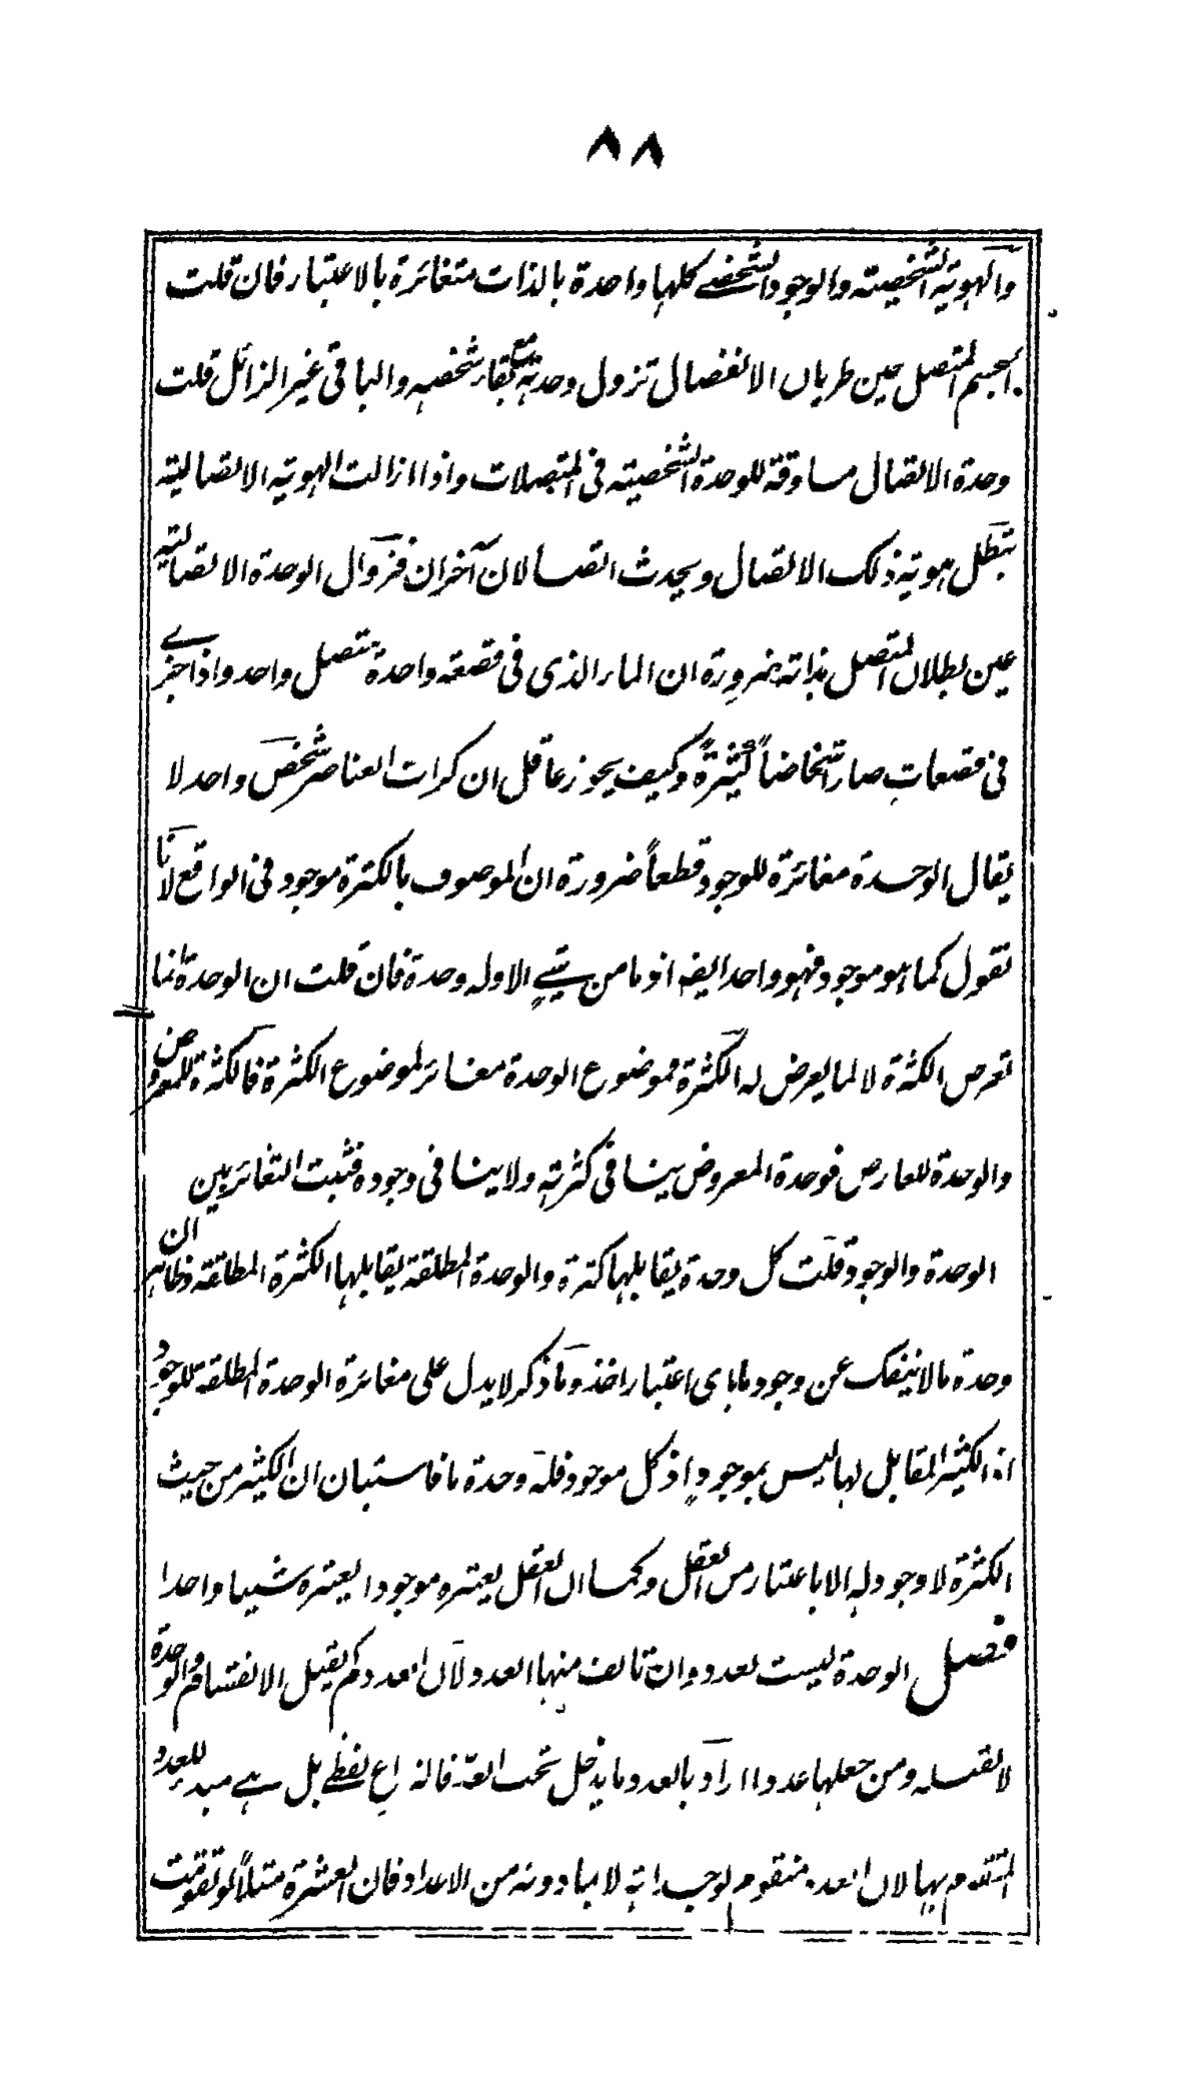 ٨٨
والهوية الشخصية والوجود الشخصي كلها واحدة بالذات متغائرة بالاعتبار فان قلت
الجسم المتصل حين طريان الانفصال تزول وحدته مع بقاء شخصه والباقى غير الزائل قلت
وحدة الاتصال مساوقة للوحدة الشخصية فى المتصلات واذا ازالت الهوية الاتصالية
تبطل هوية ذلك الاتصال ويحدث اتصالان آخران فزوال الوحدة الاتصالية
عين بطلان المتصل بذاته ضرورة ان الماء الذى فى قصعة واحدة متصل واحد واذا جزى
فى قصعات صار اشخاصاً كثيرةً وكيف يجوز عاقل ان كرات العناصر شخص واحد لا
يقال الوحدة مغائرة للوجود قطعاً ضرورة ان الموصوف بالكثرة موجود فى الواقع لانا
نقول كما هو موجود فهو واحد ايضا اذ ما من شيءٍ الا وله وحدة فان قلت ان الوحدة انما
تعرض الكثرة لا لما يعرض له الكثرة فموضوع الوحدة مغائر لموضوع الكثرة فالكثرة للمعروض
والوحدة للعارض فوحدة المعروض ينافى كثرته ولا ينافى وجوده فثبت التغائر بين
الوحدة والوجود قلت كل وحدة يقابلها كثرة والوحدة المطلقة يقابلها الكثرة المطلقة وظاهر ان
وحدة ما لا ينفك عن وجود ما باى اعتبار اخذ وما ذكر لا يدل على مغائرة الوحدة المطلقة للوجود
اذ الكثير المقابل لها ليس بموجودٍ اذ كل موجود فله وحدة ما فاستبان ان الكثير من حيث
الكثرة لا وجود له الا باعتبار من العقل وكما ان العقل يعتبره موجودا يعتبره شيا واحدا
فصل الوحدة ليست بعدد وان تالف منها العدد لان العدد كم يقبل الانقسام والوحدة
لا تقبله ومن جعلها عددا اراد بالعدد ما يدخل تحت العدّ فالنزاع لفظے بل هے مبدء للعدد
المتقدم بها لان العدد متقوم لوحداته لا بما دونه من الاعداد فان العشرة مثلاً لو تقومت